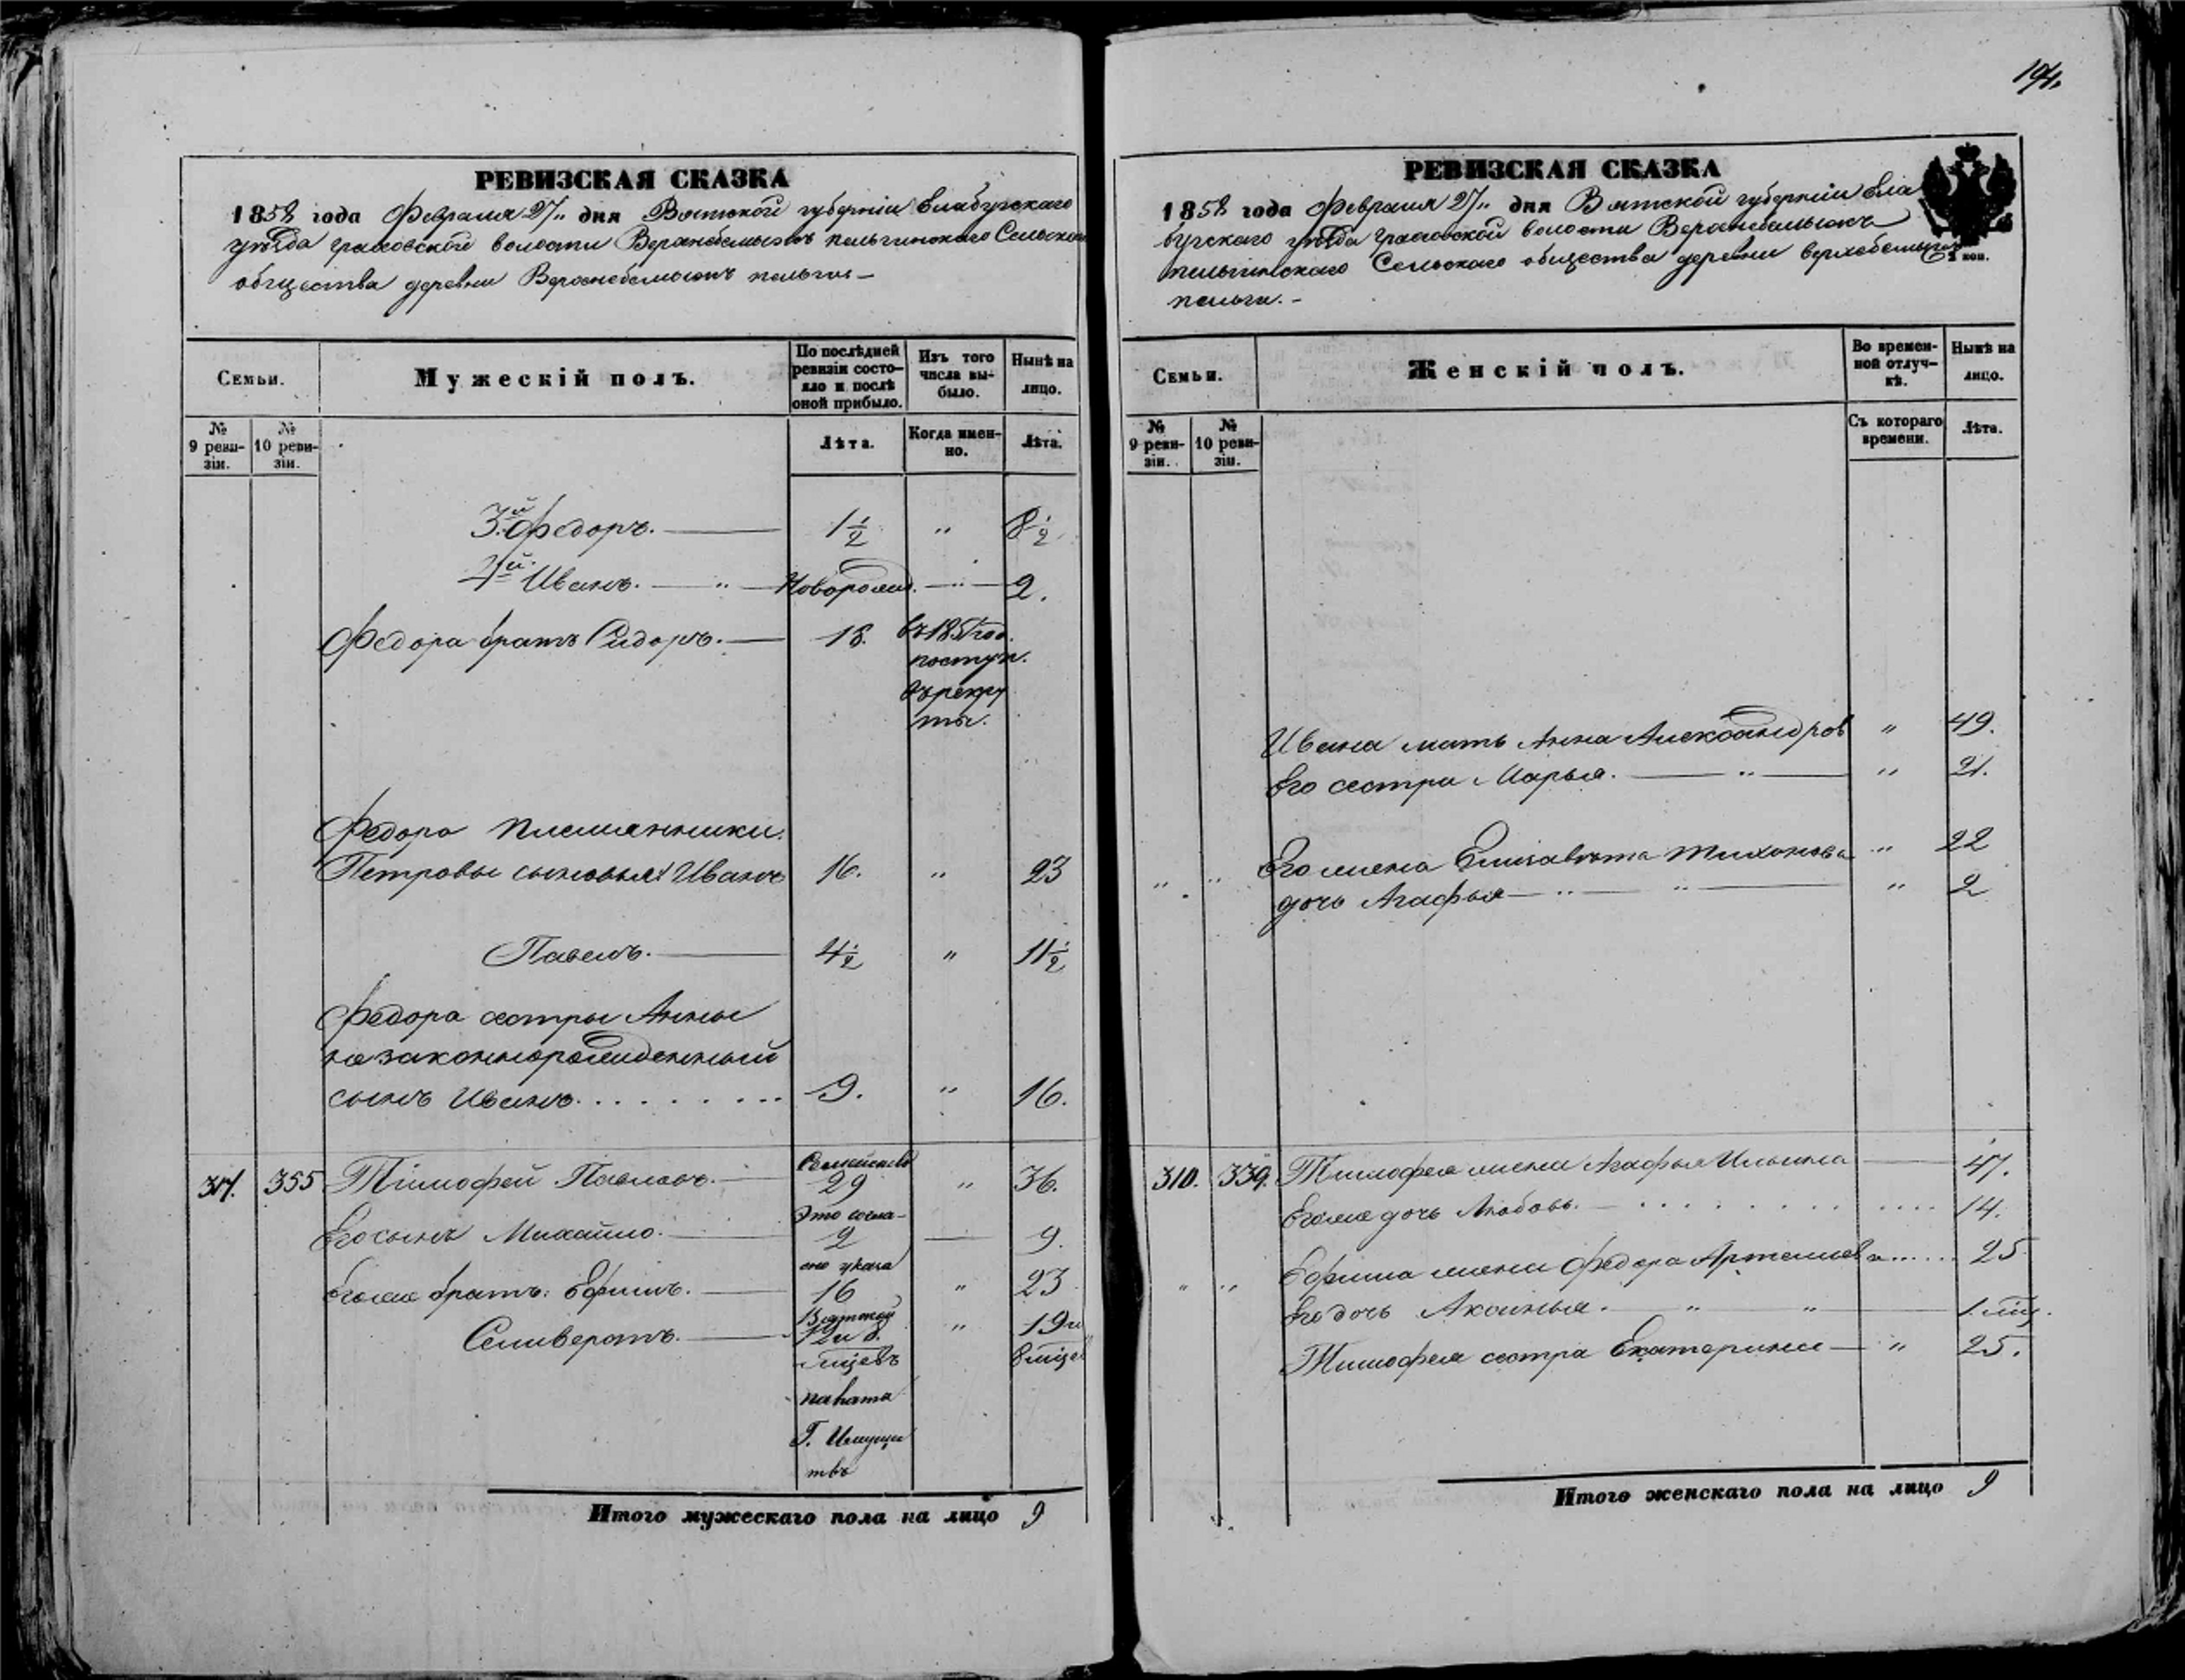 194.
РЕВИЗСКАЯ СКАЗКА
1858 года Февраля 27 " дня Вятской губерніи Елабугскаго
уѣзда Граховской волости пельгинскаго Сельскаго
общества деревни пельги —
Семьи.
Мужескій полъ.
По послѣдней ревизіи состояло и послѣ оной прибыло.
Изъ того числа выбыло.
Нынѣ на лицо.
№ 9 ревизіи.
№ 10 ревизіи.
Лѣта.
Когда именно.
Лѣта.
3.й Федоръ. 1 1/2 " 8 1/2
4й Иванъ. " Новорожд. " 2.
Федора братъ Сидоръ. 18. въ 185 год.
поступ.
въ рекру
ты.
Федора племянники.
Петровы сыновья: Иванъ 16. " 23
Павелъ. 4 1/2 " 11 1/2
Федора сестры Анны
незаконнорожденный
сынъ Иванъ. . . . . . . . . 9. " 16.
355 Тимофей Павловъ. 29 " 36.
Его сынъ Михайло. 2 — 9.
Его же братъ: Ефимъ. 16 " 23
Селиверстъ. 12 и 8 " 19 и
мцевъ 8 мцев
указа
палата
Г. Имуще
твъ
Итого мужескаго пола на лицо 9
РЕВИЗСКАЯ СКАЗКА
1858 года Февраля 27 " дня Вятской губерніи Ела
бугскаго уѣзда Граховской волости
пельгинскаго Сельскаго общества деревни
пельги. –
коп.
Семьи.
Женскій полъ.
Во временной отлучкѣ.
Нынѣ на лицо.
№ 9 ревизіи.
№ 10 ревизіи.
Съ котораго времени.
Лѣта.
Ивана мать Анна Александров " 49.
Его сестра Марья. " " 21.
" " Его жена Елизавѣта Тихонова " 22
дочь Агафья " " " 2
310. 339. Тимофея жена Агафья Ильина 47.
Его же дочь Любовь. 14.
" " Ефима жена Федора Артемьева 25
Его дочь Аксинья. " " 1. мц.
Тимофея сестра Екатерина " 25.
Итого женскаго пола на лицо 9